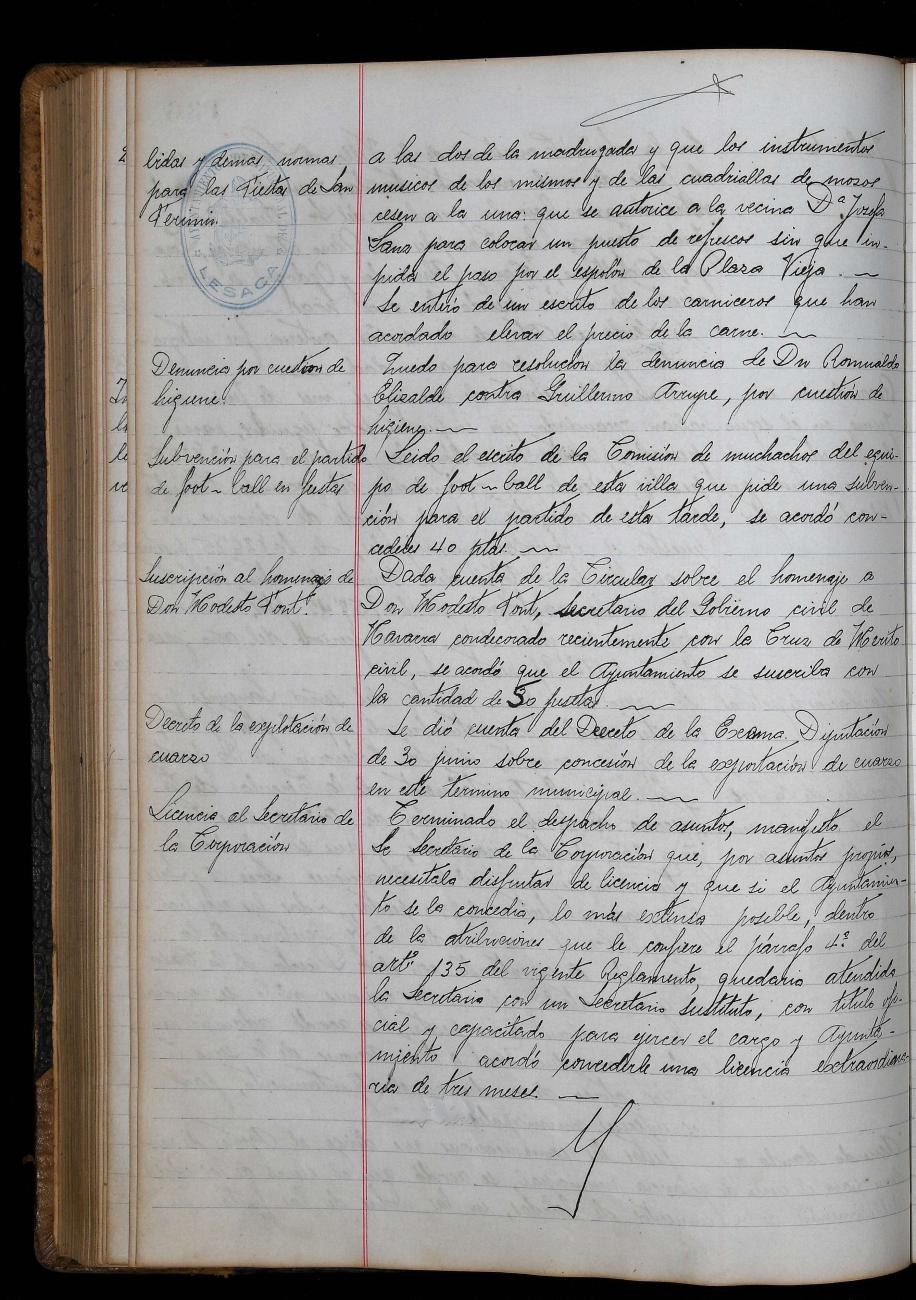 bidas y demas normas
para las Fiestas de San
Fermin.
LESACA
a las dos de la madrugada y que los instrumentos
musicos de los mismos y de las cuadriallas de mozos
cesen a la una: que se autorice a la vecina Dª Josefa
Sanz para colocar un puesto de refrescos sin que im-
pida el paso por el espolón de la Plaza Vieja.
Se enteró de un escrito de los carniceros que han
acordado elevar el precio de la carne.
Denuncia por cuestion de
higiene.
Quedo para resolucion la denuncia de Dn Romualdo
Elizalde contra Guillermo Arrupe, por cuestión de
higiene.
Subvención para el partido
de foot-ball en fiestas
Leido el escrito de la Comisión de muchachos del equi-
po de foot-ball de esta villa que pide una subven-
ción para el partido de esta tarde, se acordó con-
cederles 40 ptas.
Suscripción al homenaje de
Don Modesto Font.
Dada cuenta de la Circular sobre el homenaje a
Don Modesto Font, secretario del Gobierno civil de
Navarra condecorado recientemente con la Cruz de Merito
civil, se acordó que el Ayuntamiento se suscriba con
la cantidad de 50 pesetas.
Decreto de la explotación de
cuarzo
Se dió cuenta del Decreto de la Excma. Diputación
de 30 junio sobre concesión de la exportación de cuarzo
en este termino municipal.
Licencia al Secretario de
la Corporación
Terminado el despacho de asuntos, manifesto el
Sr Secretario de la Corporación que, por asuntos propios,
necesitaba disfrutar de licencia y que si el Ayuntamien-
to se la concedia, lo más extensa posible, dentro
de la atribuciones que le confiere el párrafo 4º del
artº 135 del vigente Reglamento, quedaria atendida
la Secretaria con un Secretario sustituto, con titulo ofi-
cial y capacitado para ejercer el cargo y Ayunta-
miento acordó concederle una licencia extraordina-
ria de tres meses.